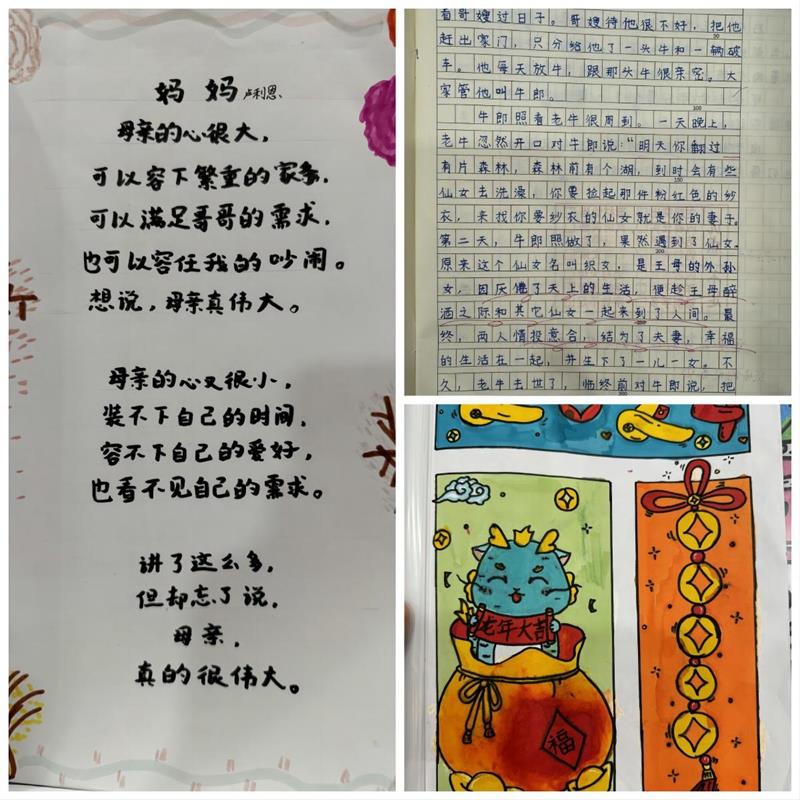 妈妈 卢利恩
母亲的心很大,
可以容下繁重的家务,
可以满足哥哥的需求,
也可以容任我的吵闹。
想说,母亲真伟大。
母亲的心又很小,
装不下自己的时间,
容不下自己的爱好,
也看不见自己的需求。
讲了这么多,
但却忘了说,
母亲,
真的很伟大。
着哥嫂过日子。哥嫂待他很不好,把他
赶出家门,只分给他了一头牛和一辆破
车。他每天放牛,跟那头牛很亲密。大
家管他叫牛郎。
牛郎照看老牛很周到。一天晚上,
老牛忽然开口对牛郎说:“明天你翻过
有片森林,森林前有个湖,到时会有些
仙女去洗澡,你要捡起那件粉红色的纱
衣,来找你要纱衣的仙女就是你的妻子。
第二天,牛郎照做了,果然遇到了仙女。
原来这个仙女名叫织女,是王母的外孙
女,因厌倦了天上的生活,便趁王母醉
酒之际和其它仙女一起来到了人间。最
终,两人情投意合,结为了夫妻,幸福
的生活在一起,并生下了一儿一女。不
久,老牛去世了,临终前对牛郎说,把
龙年大吉
福